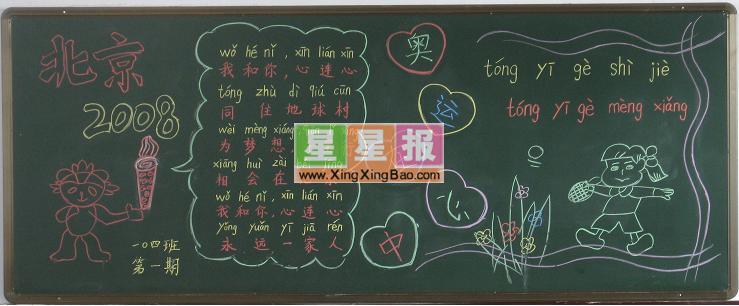 北京
2008
一〇四班
第一期
wǒ hé nǐ, xīn lián xīn
我和你,心连心
tóng zhù dì qiú cūn
同住地球村
wèi mèng xiǎng
为梦想,
xiāng huì zài běi jīng
相会在
wǒ hé nǐ, xīn lián xīn
我和你,心连心
yǒng yuǎn yī jiā rén
永远一家人
星星报
www.XingXingBao.com
奥
运
心
中
tóng yī gè shì jiè
tóng yī gè mèng xiǎng